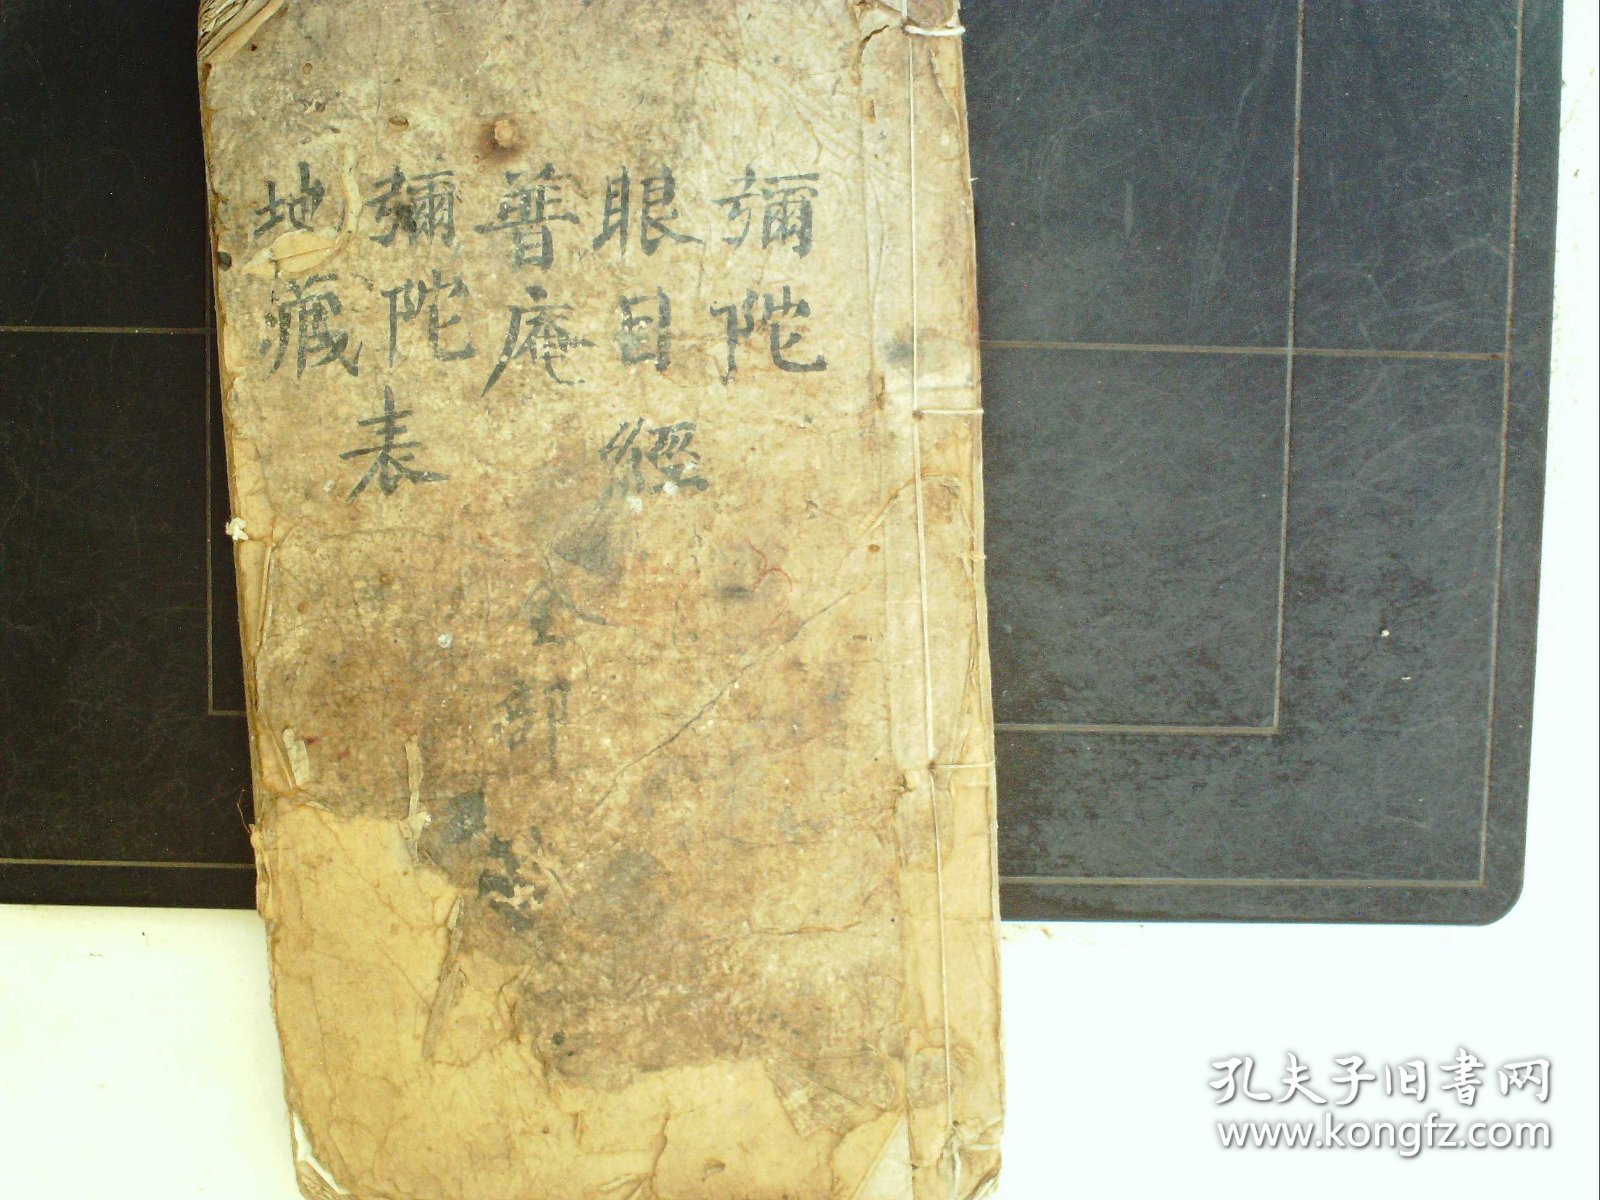 彌陀
眼目經
普庵
彌陀表
地藏
全部
孔夫子旧书网
www.kongfz.com